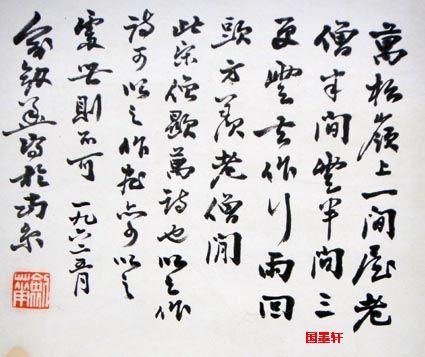 萬松嶺上一間屋老
僧半間雲半間三
更雲去作行雨回
頭方羨老僧閒
此宋僧顯萬詩也以之作
詩可以之作畫亦可以之
處世則不可 一九六二五月
俞劍華寫於南京
劍華
国墨轩